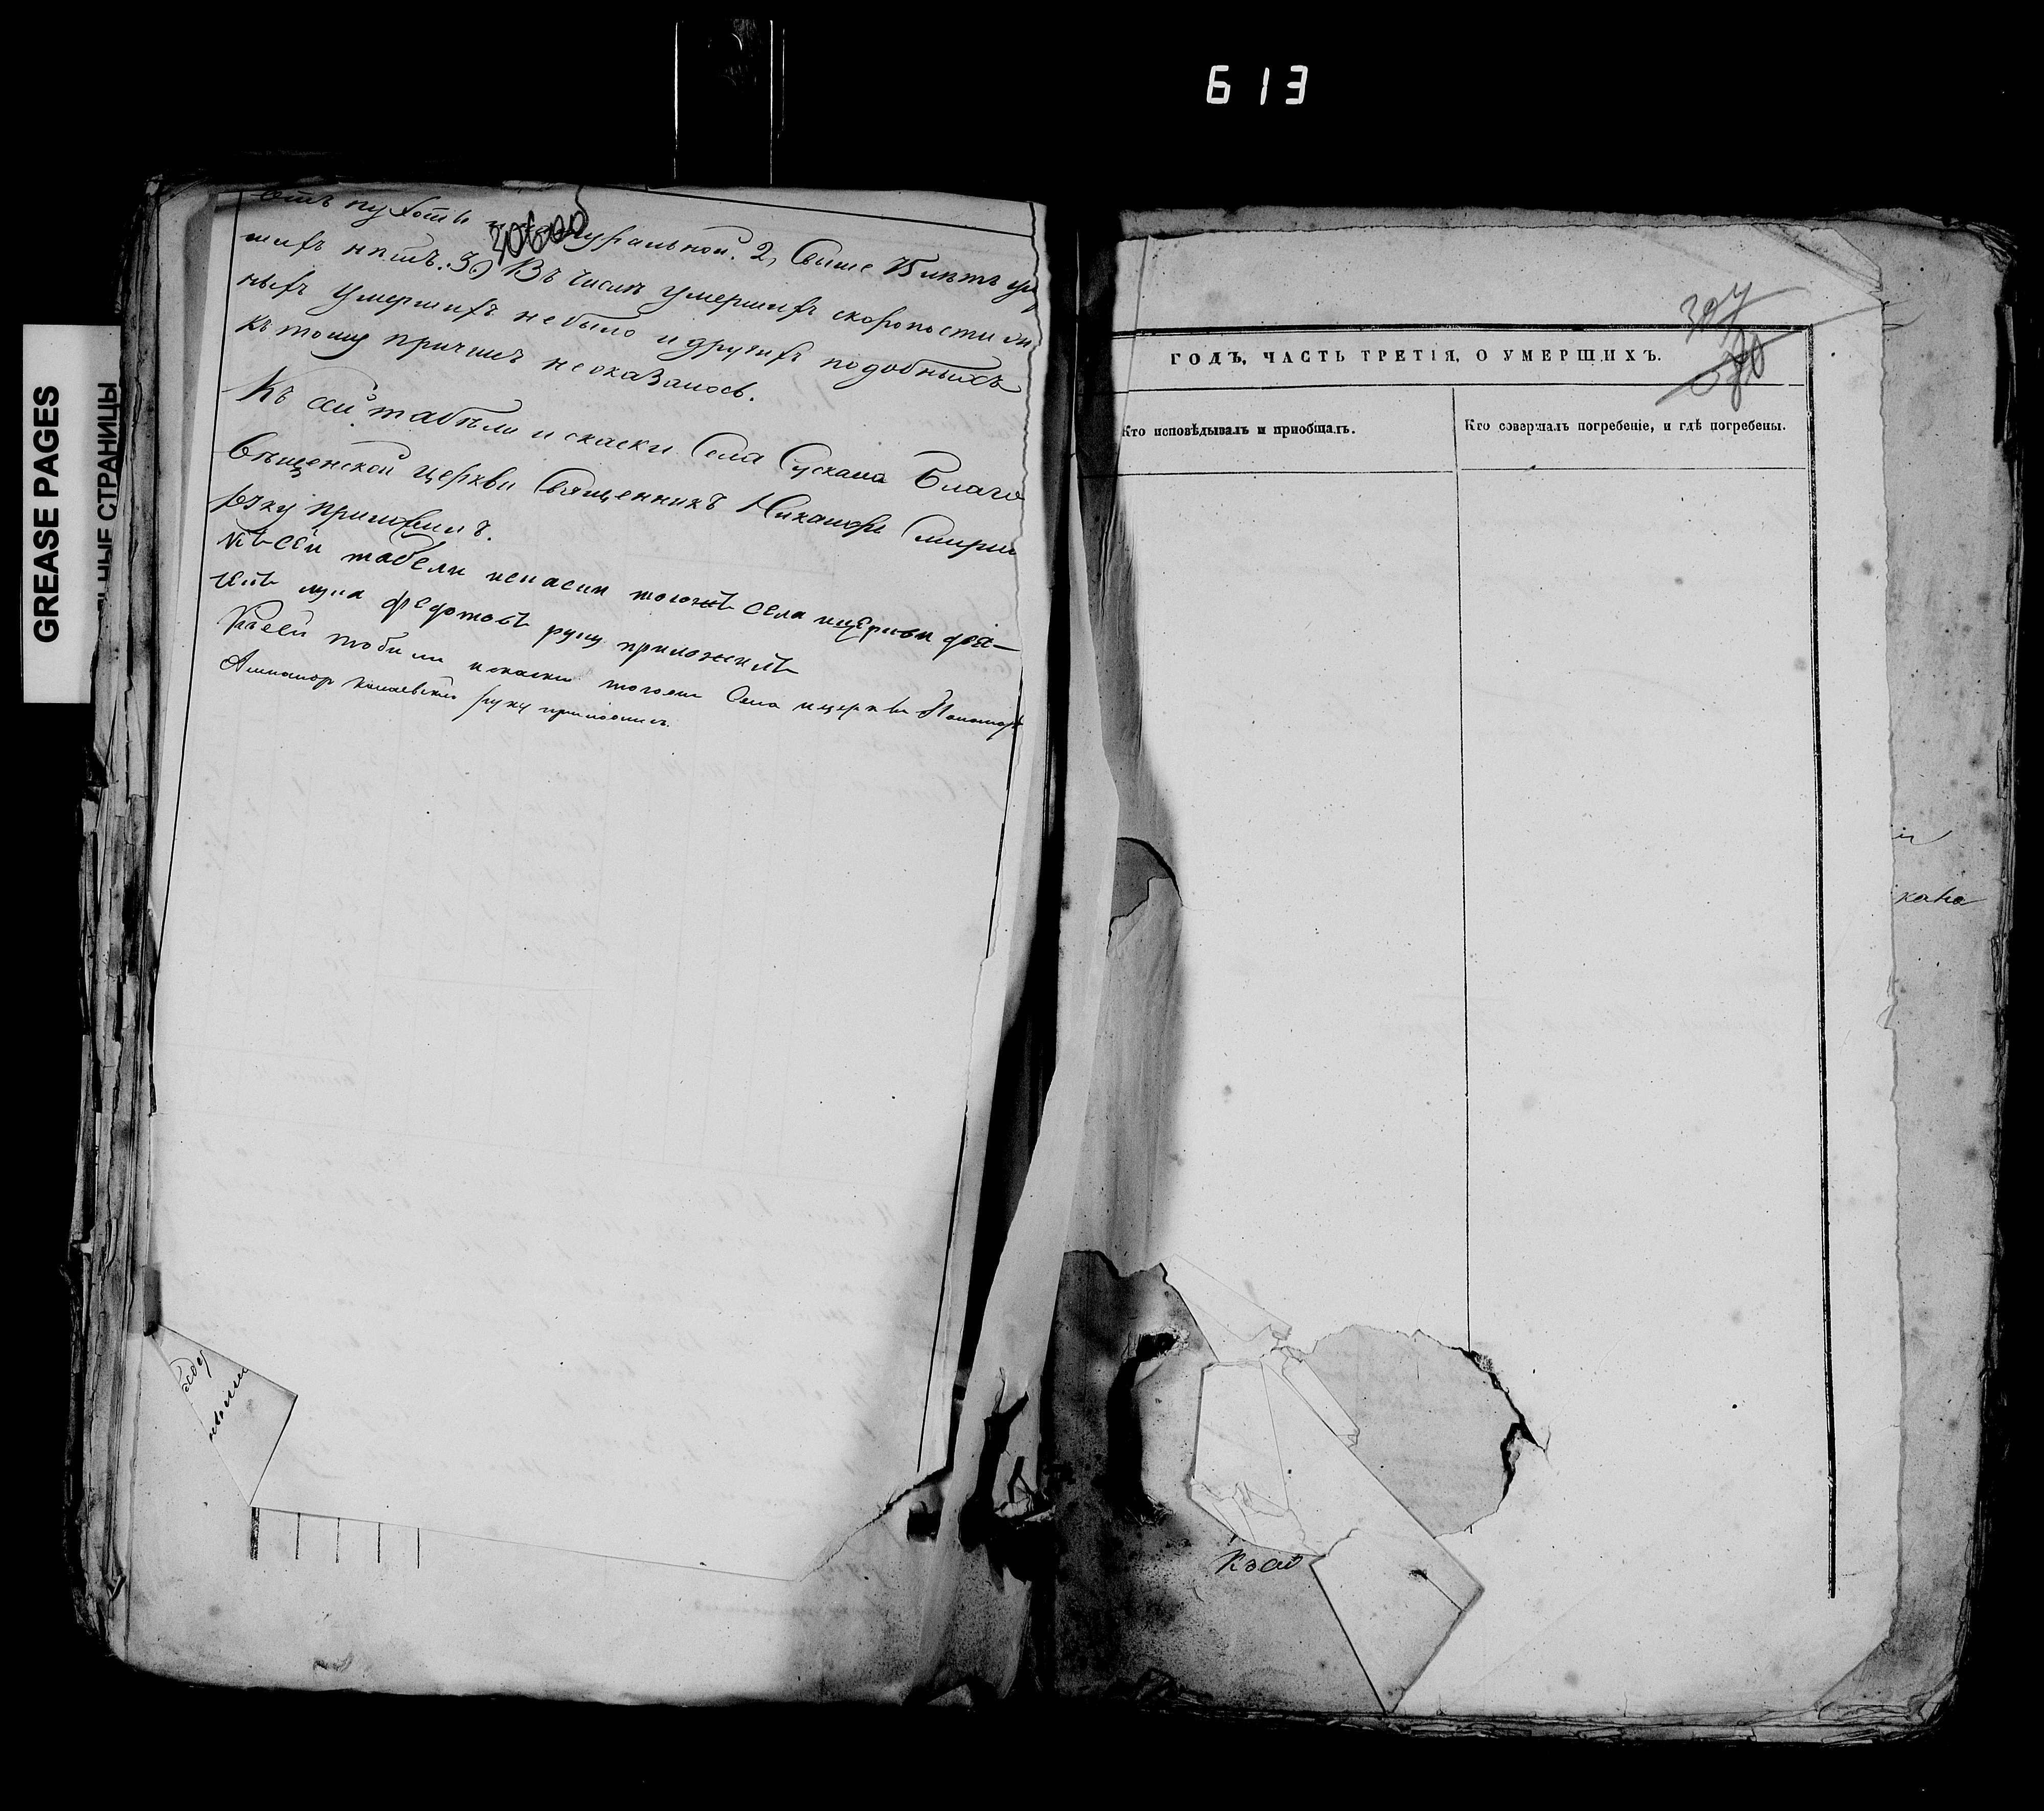 613
GREASE PAGES
НЫЕ СТРАНИЦЫ
30600
2, Свыше 75 лѣтъ
ншхъ нѣтъ. 3,) Въ числѣ умершихъ скоропости
ныхъ умершихъ небыло и другихъ подобныхъ
къ тому причинъ неоказалось.
Къ сей табѣли и сказки Села Сускана Благо
вѣщенской церкви Священникъ Никаноръ Смирн
руку приложилъ.
Къ сей табели исказки тогожъ села ицеркви дья-
чекъ лука федотовъ руку приложилъ
Къ сей тобели исказки тогоже Села ицеркви Пономарь
руку приложилъ.
397
ГОДЪ, ЧАСТЬ ТРЕТІЯ, О УМЕРШИХЪ.
Кто исповѣдывалъ и пріобщалъ.
Кто совершалъ погребеніе, и гдѣ погребены.
кана
Къ сей